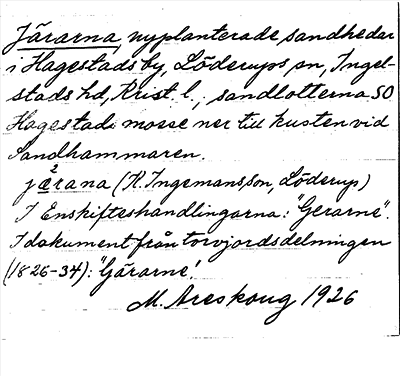 Järarna, nyplanterade sandhedar
i Hagestads by, Löderups sn, Ingel-
stads hd, Krist. l., sandlotterna SO
Hagestads mosse ner till kusten vid
Sandhammaren.
jæ̀rana (K. Ingemansson, Löderup)
I Enskifteshandlingarna: "Gerarne".
I dokument från torvjordsdelningen
(1826-34): "Gärarne".
M. Areskoug 1926